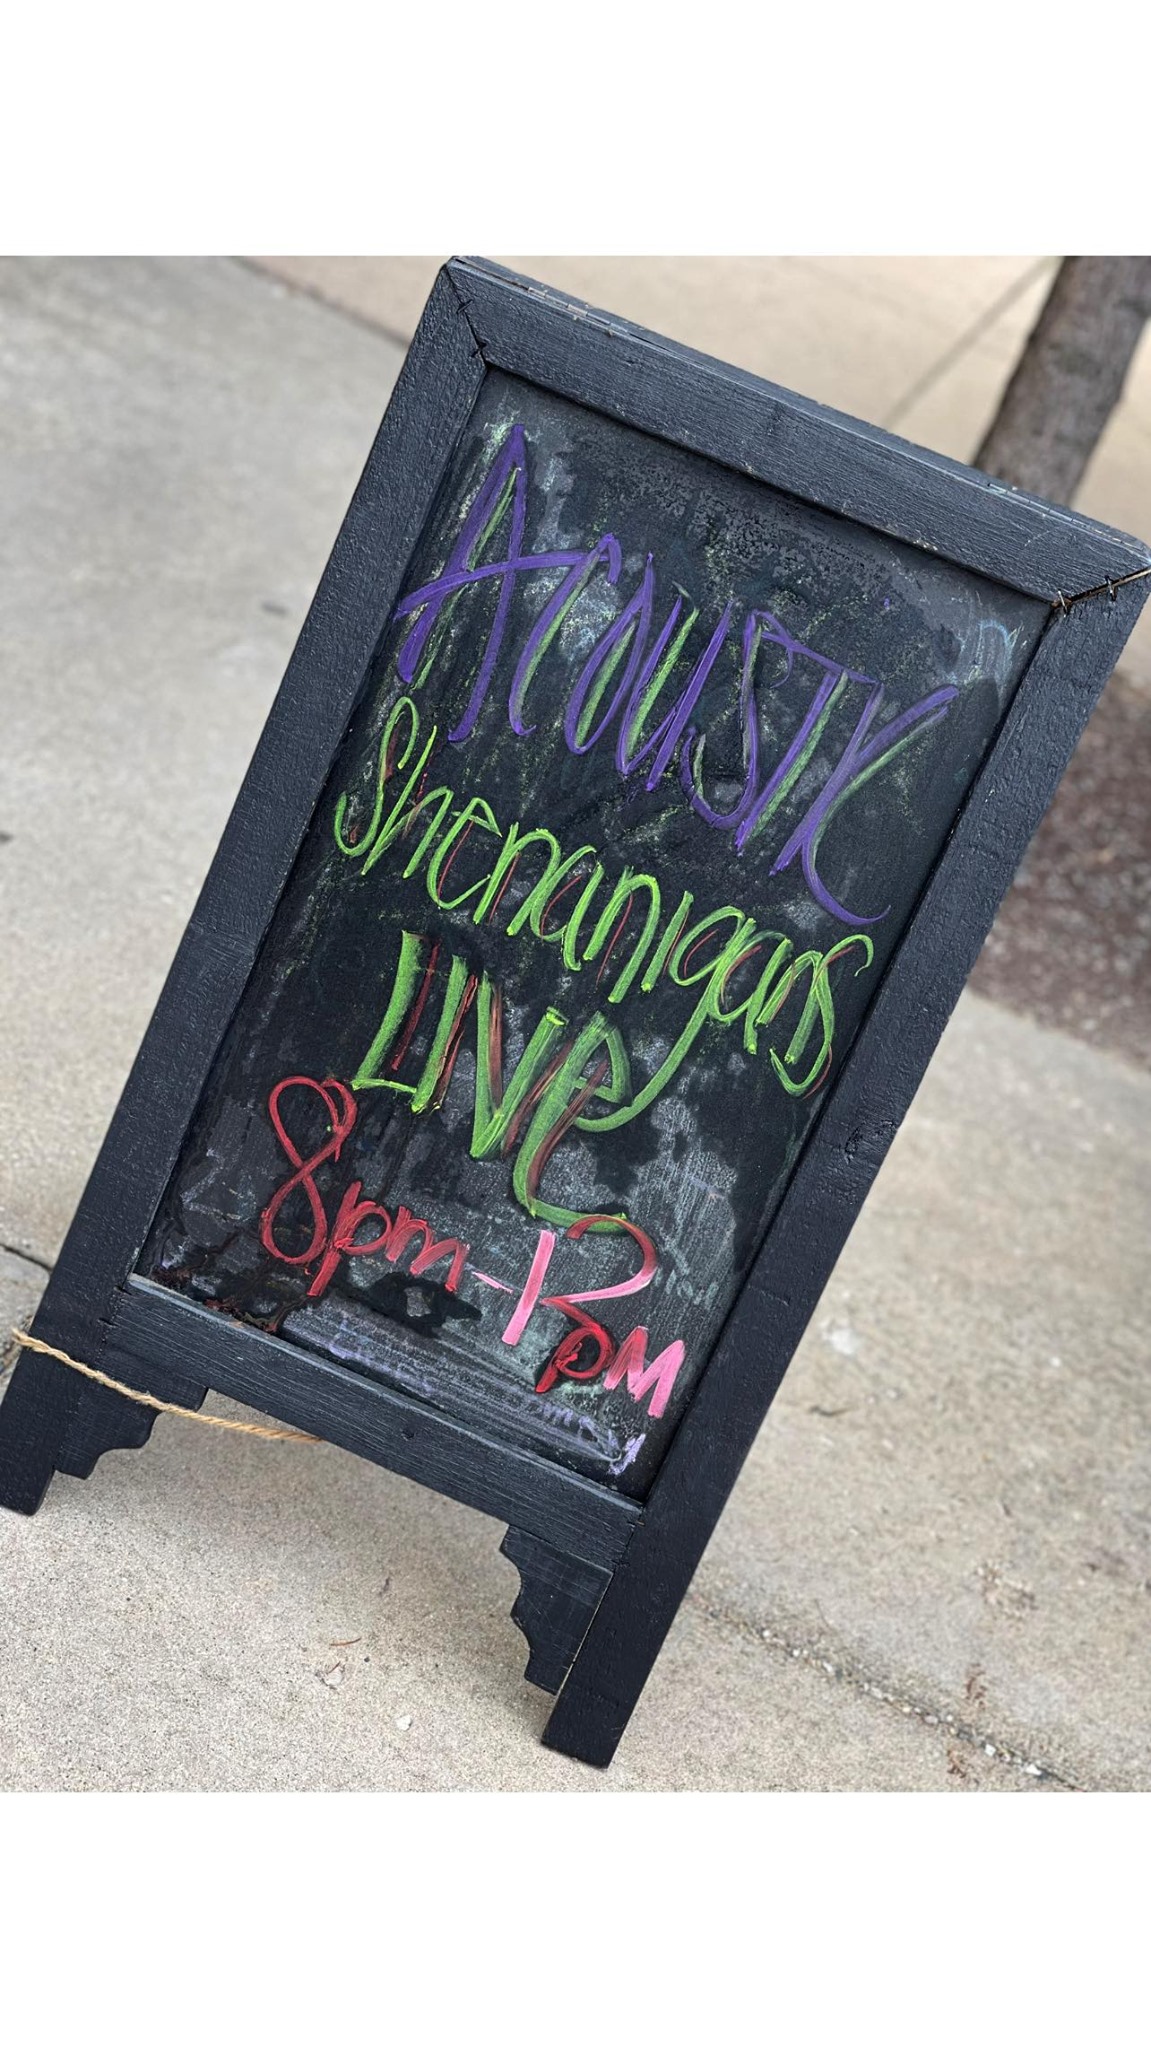 Acoustic
Shenanigans
LIVE
8pm-12
pM